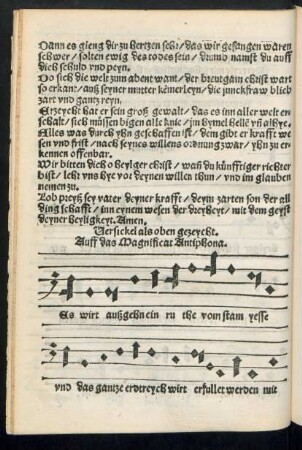 Dann es gieng dir zu hertzen sehr/ das wir gefangen waren
schwer/ solten ewig des todes sein/ drumb namst du auff
dich schuld vnd peyn.
Do sich die welt zum abent want/ der breutgam christ wart
so erkant/ auß seyner mutter kemerleyn/ die junckfraw blieb
zart vnd gantz reyn.
Ertzeycht hat er sein groß gewalt/ das es inn aller welt er-
schalt/ sich müssen bigen alle knie/ im hymel helle vñ alhye.
Alles was durch yhn geschaffen ist/ dem gibt er krafft we
sen vnd frist/ nach seynes willens ordnung zwar/ yhn zu er-
kennen offenbar.
Wir bitten dich o heylger christ/ wañ du künfftiger richter
bist/ lehr vns hye vor deynen willen thun/ vnd im glauben
nemen zu.
Lob preyß sey vater deyner krafft/ deyin zarten son der all
ding schafft/ inn eynem wesen der dreyheyt/ mit dem geyst
deyner heyligkeyt. Amen.
Versickel als oben gezeycht.
Auff das Magnificat Antiphona.
Es wirt außgehn ein ru the vom stam yesse
vnd das gantze erdtreych wirt erfullet werden mit